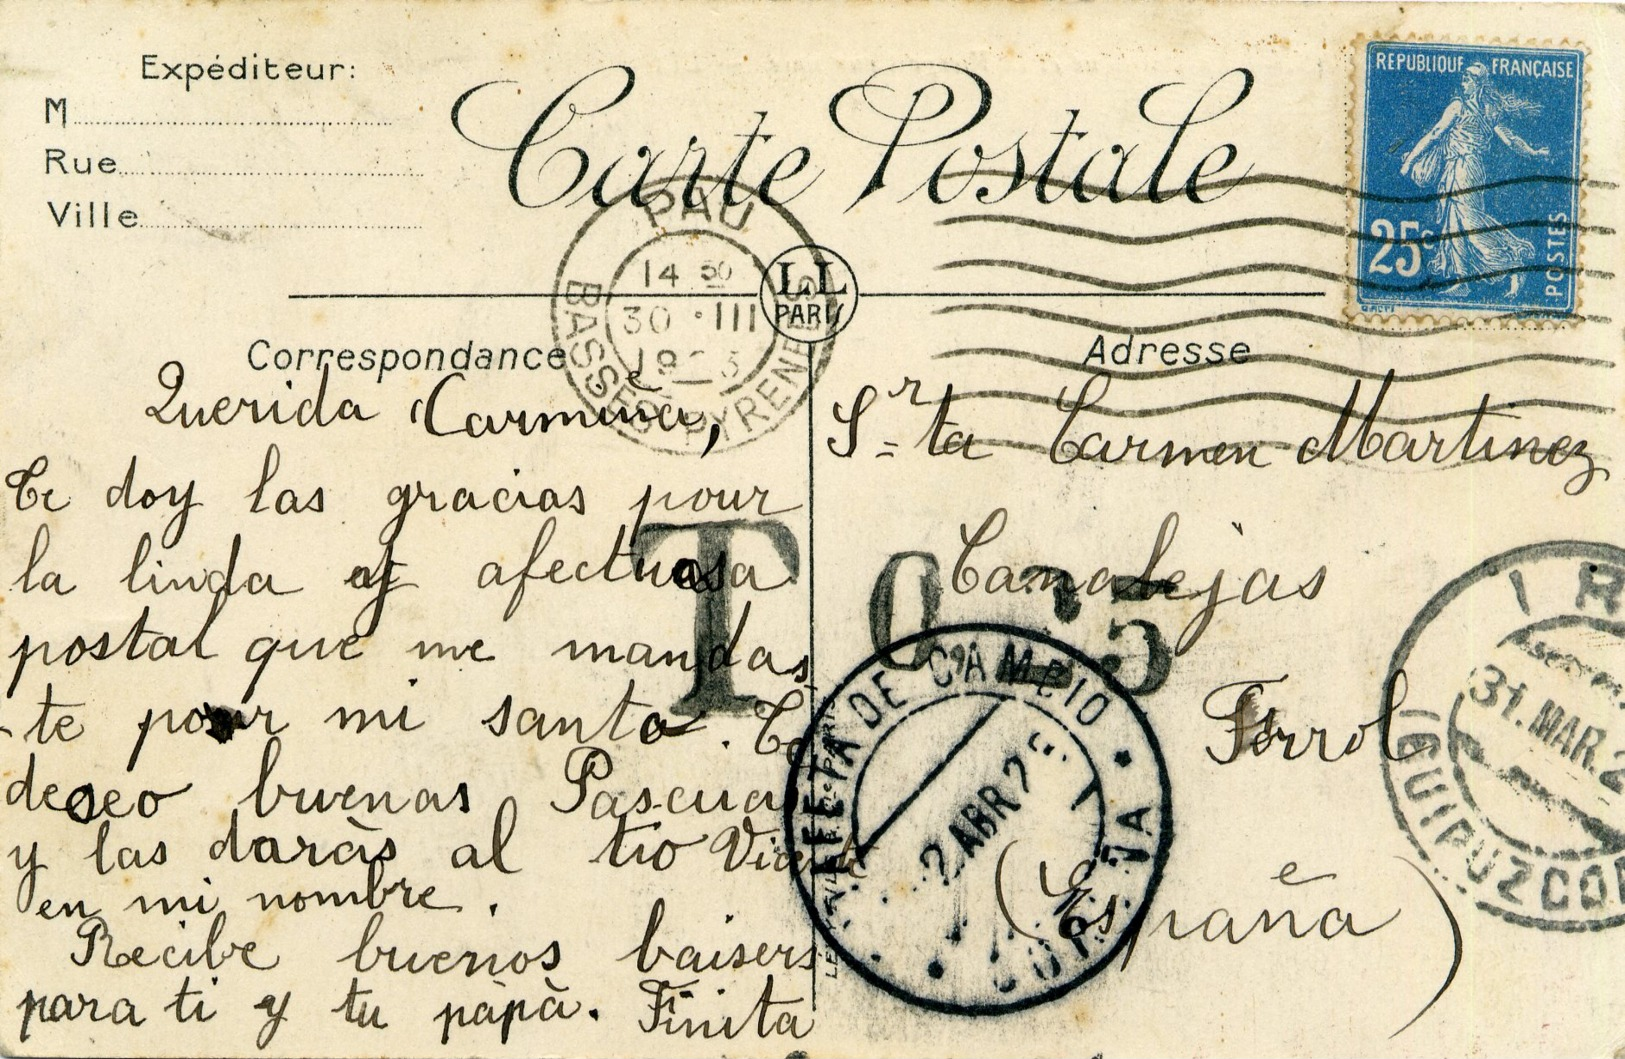 Expéditeur:
M
Rue
Ville
Carte Postale
REPUBLIQUE FRANÇAISE
25c
POSTES
PAU
14 30
30 · III
BASSES PYRENEES
LL
PARIS
Correspondance
Adresse
Querida Carmiña,
Te doy las gracias pour
la linda y afectuosa
postal que me mandas
-te pour mi santo. Te
deseo buenas Pascuas
y las daràs al tio Vicente
en mi nombre.
Recibe buenos baisers
para ti y tu pàpà. Finita
Sr=ta Carmen Martinez
Canalejas
Ferrol
(España)
T 0
5
DE CAMBIO
2 ABR 2
IR
31. MAR. 2
(GUIPUZCOA